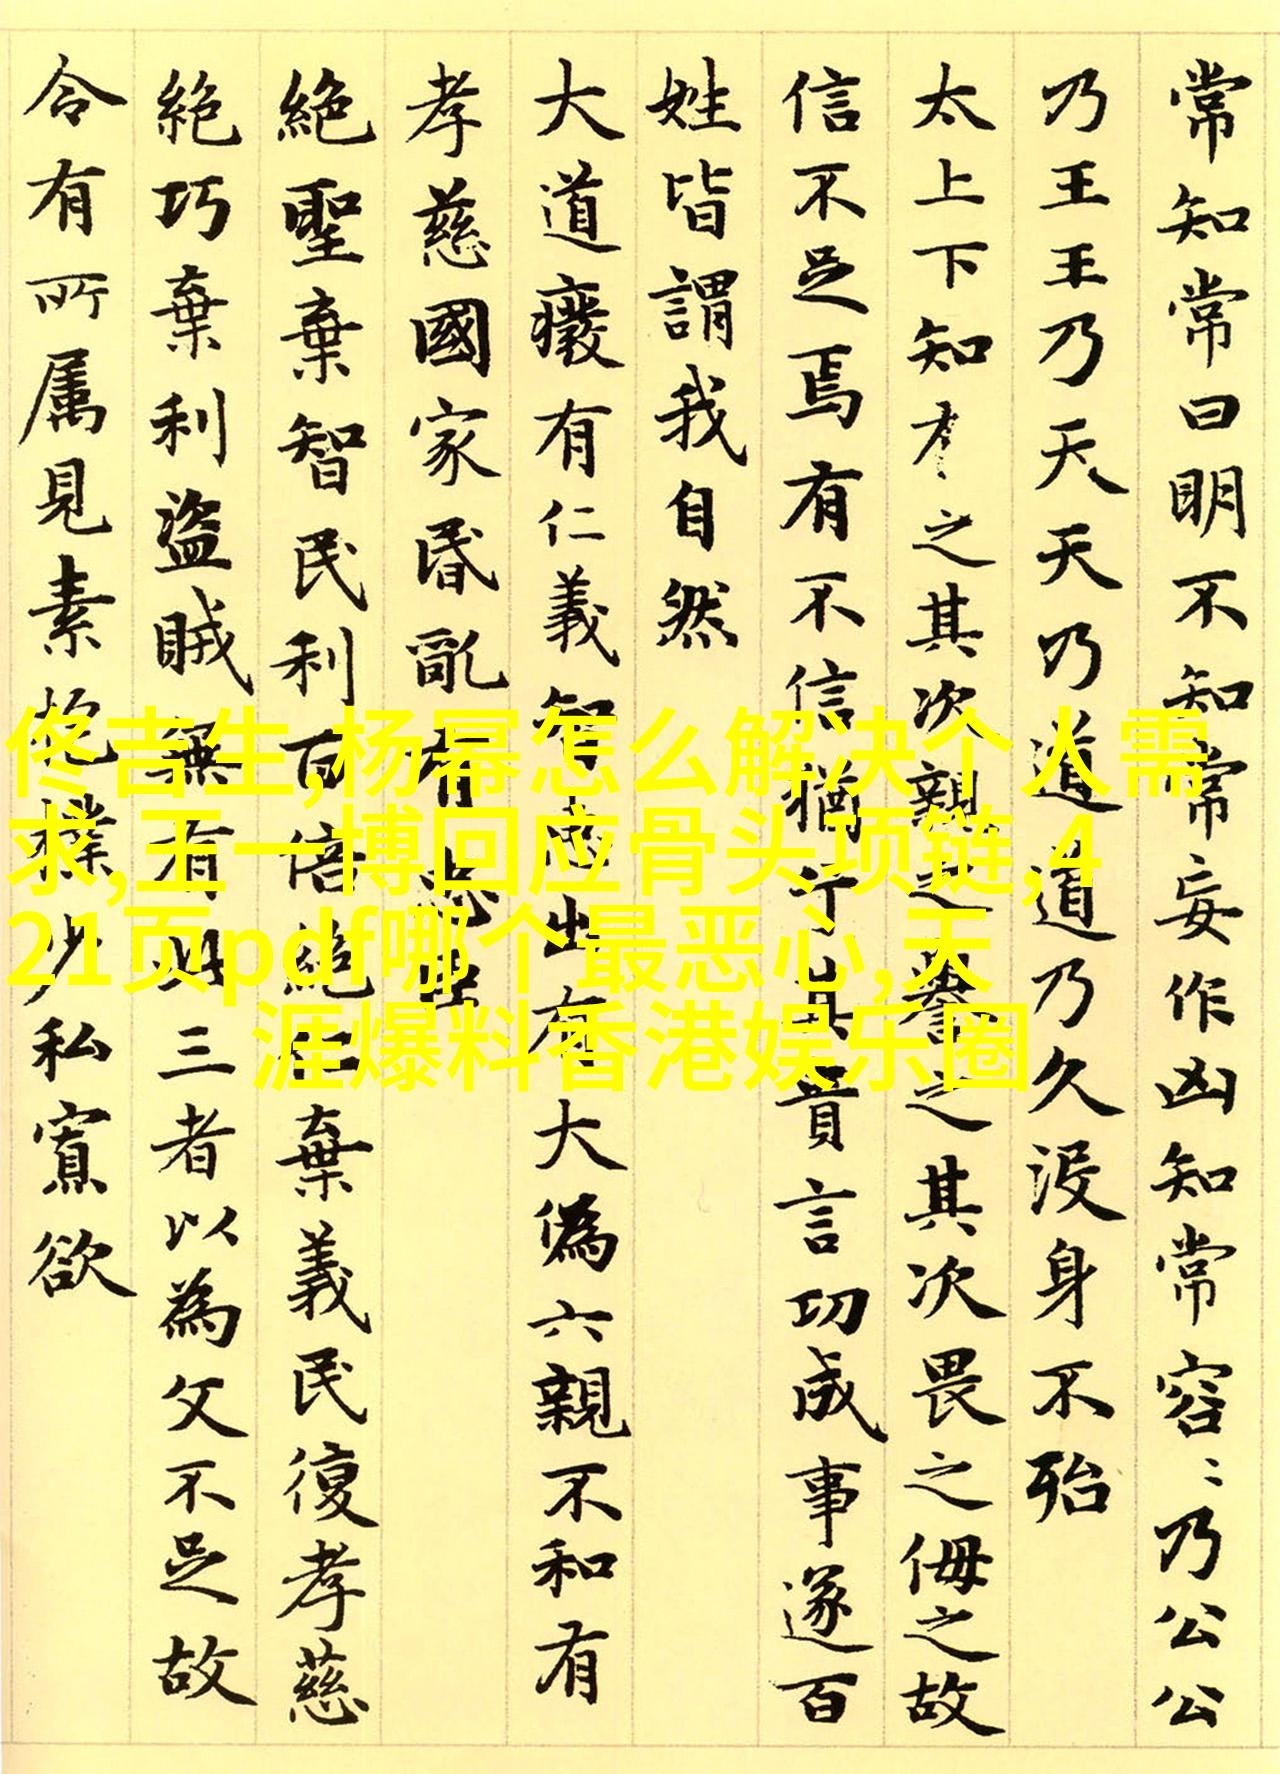 常知常曰明不知知常妄作凶知常容〻乃公公
乃王王乃天天乃道道乃久没身不殆
太上下知有之其次親之譽之其次畏之侮之故
信不足焉有不信猶其貴言功成事遂百
姓皆謂我自然
大道癈有仁義智出有大偽六親不和有
孝慈國家昏亂有忠
絶聖棄智民利百倍絶仁棄義民復孝慈
絶巧棄利盜賊無有此三者以為文不足故
令有所属見素抱樸少私寡欲
佟吉生,杨幂怎么解决个人需
求,王一博回应骨头项链,4
21页pdf哪个最恶心,天
涯爆料香港娱乐圈